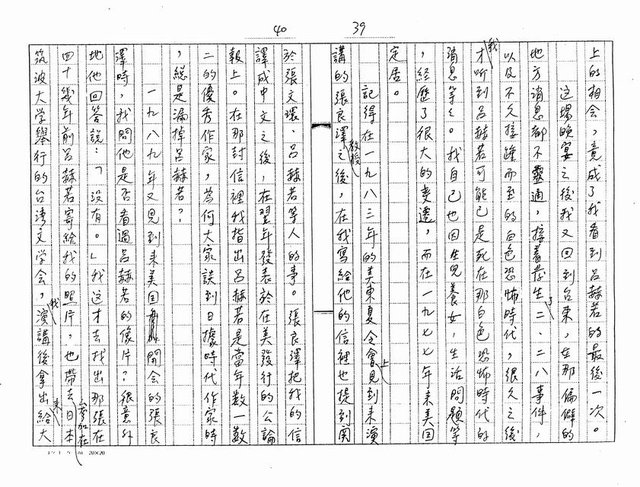 39
上的相会，竟成了我看到呂赫若的最後一次。
這場晚宴之後我又回到台東，在那偏僻的
地方消息都不靈通，接着發生了二、二八事件，
以及不久接踵而至的白色恐怖時代，很久之後
我才听到呂赫若可能已是死在那白色恐怖時代的
消息等々。我自己也因生兒養女，生活問題等
，經歷了很大的变遷，而在一九七七年来美国
定居。
記得在一九八三年的美東夏令會上見到来演
講的張良澤教授之後，在我寫給他的信裡也提到関
40
於張文環、呂赫若等人的事。張良澤把我的信
譯成中文之後，在翌年發表於在美發行的公論
報上。在那封信裡我指出呂赫若是當年數一數
二的優秀作家，為何大家談到日據時代作家時
，總是漏掉呂赫若？
一九八九年又見到来美国開会的張良
澤時，我問他是否看過呂赫若的像片？很意外
地他回答説：「没有。」我這才去找出那張在
四十幾年前呂赫若寄給我的照片，也帶去日本參加在
筑波大学舉行的台湾文学会，我演講後拿出来給大